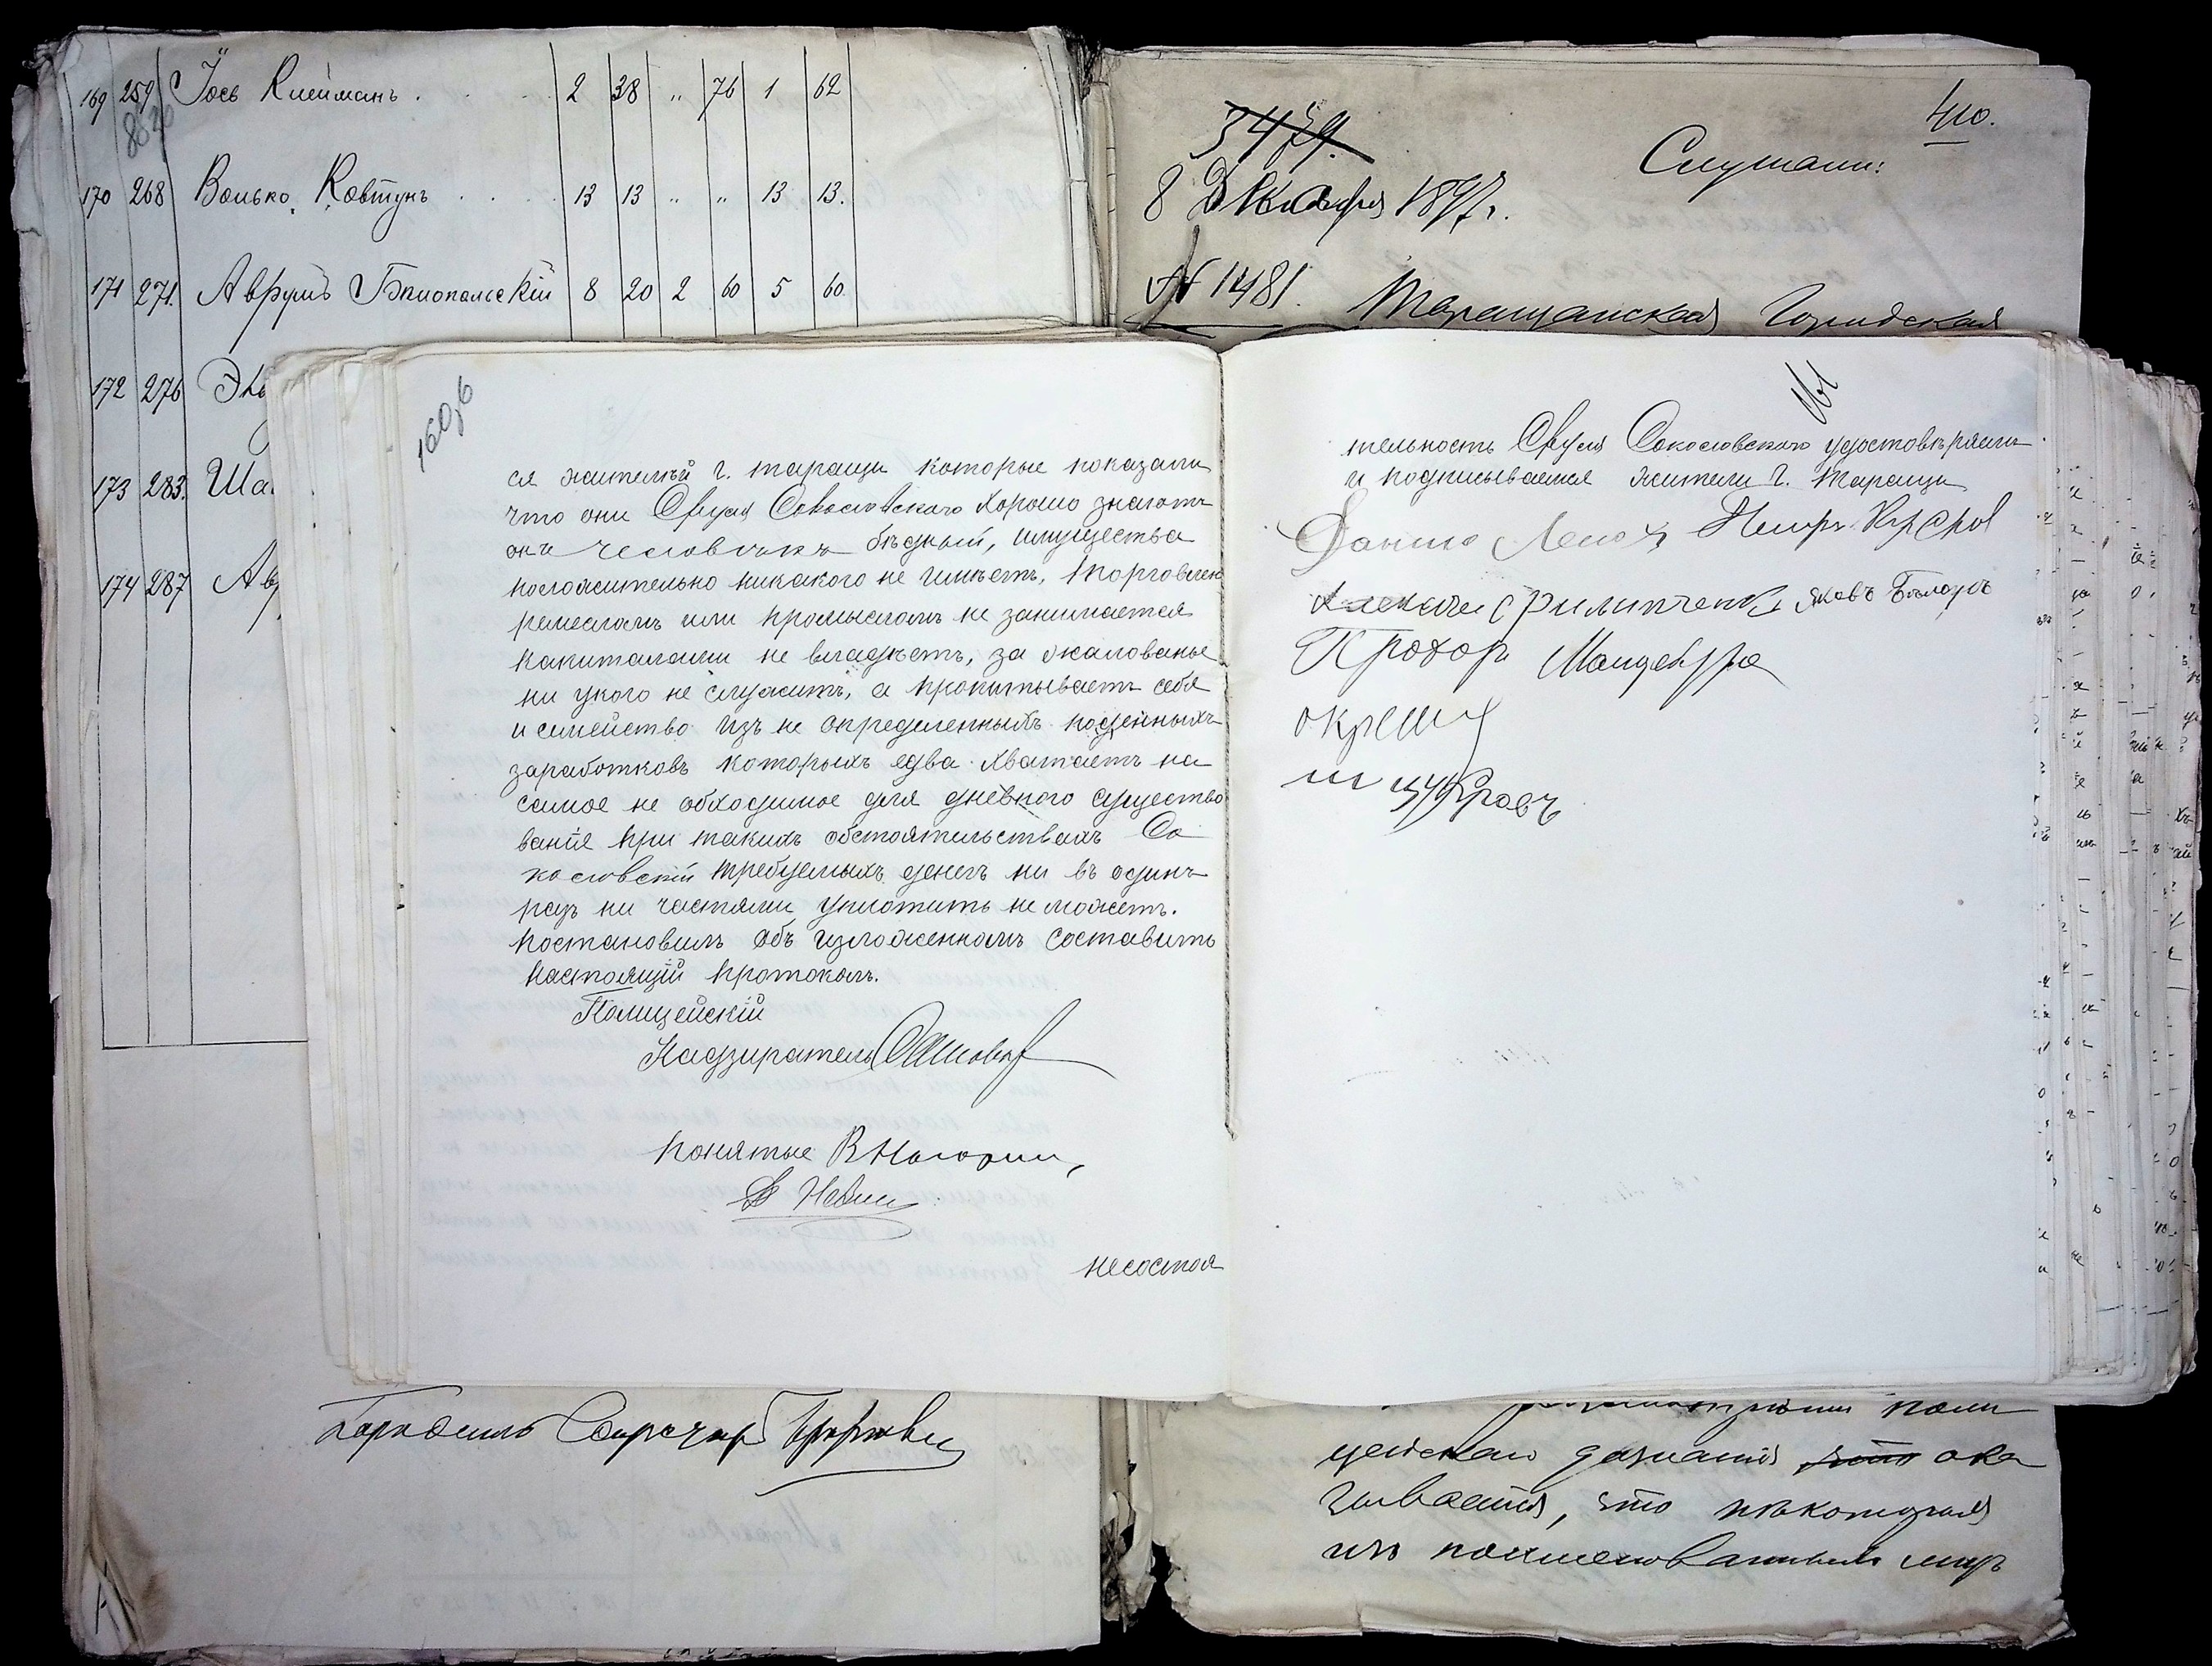 169 259 Іось Клейманъ . . . 2 38 " 76 1 62
170 268 Волько Ковтунъ . . . 13 13 " " 13 13.
171 271. Аврумъ Бялопольскій 8 20 2 60 5 60
172 276 Эль
173 283. Ша
174 287 Ав
410.
3479.
Слушали:
8 Декабря 1897 г.
№ 1481. Таращанская Городская
160об
ся жителей г. Таращи которые показали
что они Сруля Соколовскаго хорошо знаютъ
онъ человѣкъ бѣдный, имущества
положительно никакого не имѣетъ, торговлею
ремесломъ или промысломъ не занимается
капиталами не владѣетъ, за жалованье
ни укого не служитъ, а пропитываетъ себя
и семейство изъ не определенныхъ поденныхъ
заработковъ которыхъ едва хватаетъ на
самое не обходимое для дневного существо
ванія при такихъ обстоятельствахъ Со
коловскій требуемыхъ денегъ ни въ одинъ
разъ ни частями уплотить не можетъ.
постановилъ объ изложенномъ составить
настоящій протоколъ.
Полицейскій
Надзиратель
понятые
несостоя
161
тельность Сруля Соколовскаго удостовѣряемъ
и подписываемся жители г. Таращи
Данило
Филипченко Яковъ Бѣлоусъ
Прохор Мандебура
цейскаго дознанія что ока
зывается, что нѣкоторыя
изъ поименованныхъ лицъ